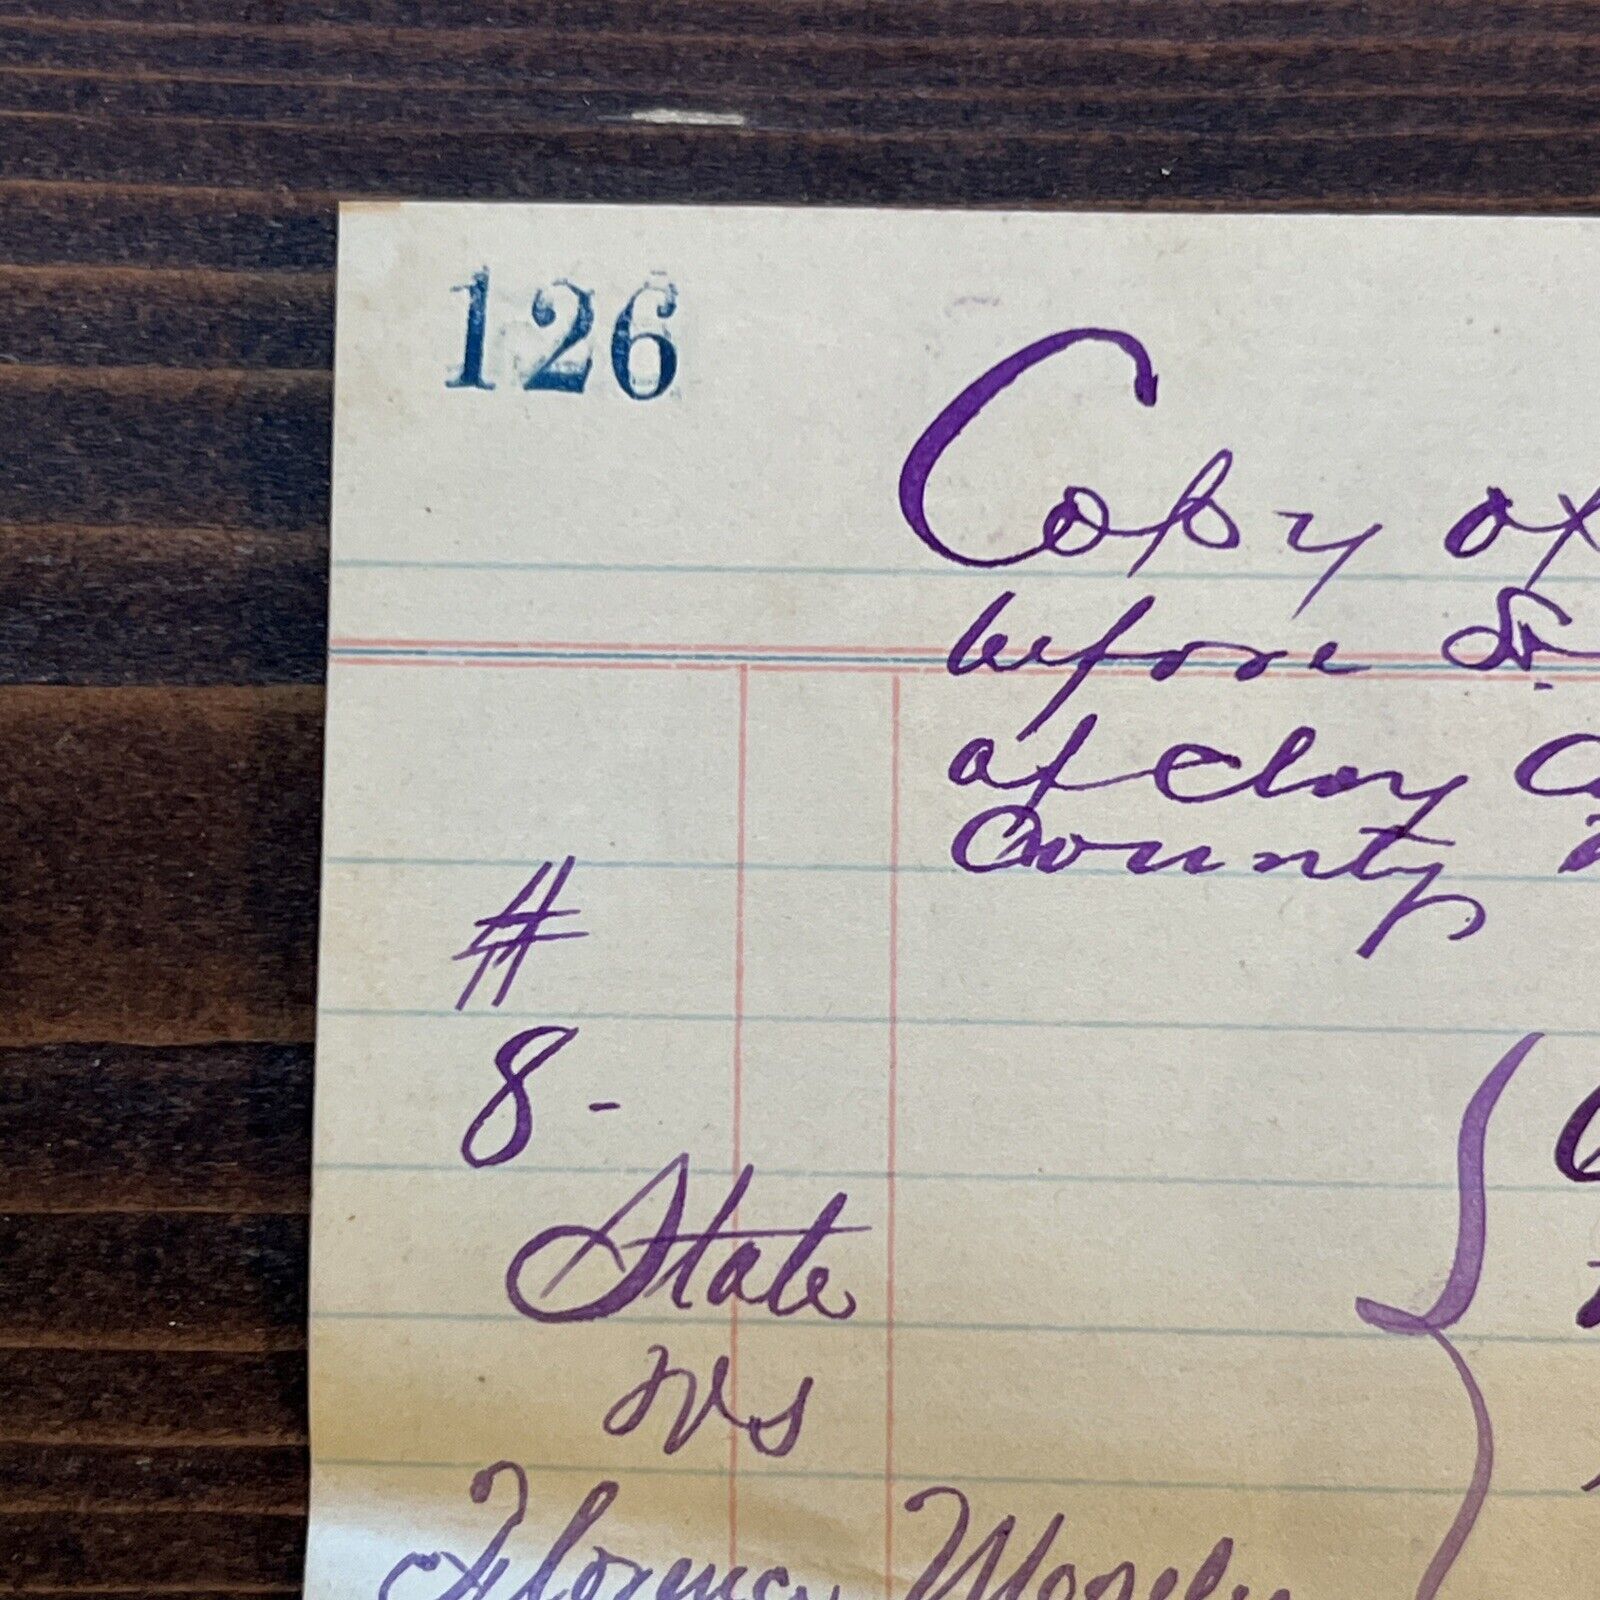 126
Copy of
before
of Clay
County
#
8-
State
vs
Florency Mosely